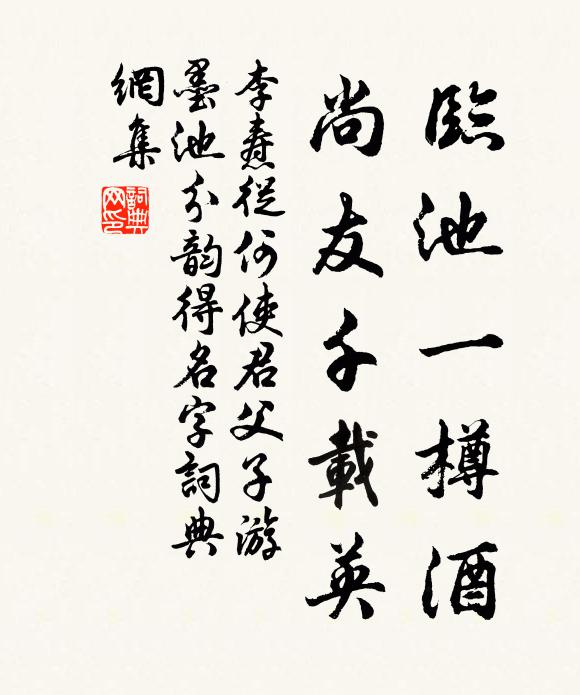 臨池一樽酒
尚友千載英
李燾從何使君父子游
墨池分韵得名字詞典
網集
詞典网印